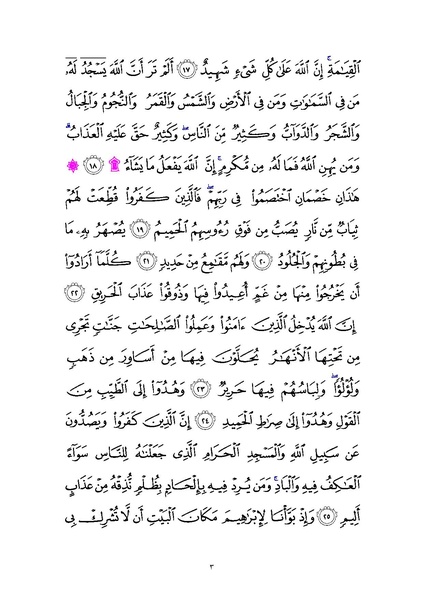 ٱلۡقِيَٰمَةِۚ إِنَّ ٱللَّهَ عَلَىٰ كُلِّ شَيۡءٖ شَهِيدٌ ١٧ أَلَمۡ تَرَ أَنَّ ٱللَّهَ يَسۡجُدُۤ لَهُۥۤ
مَن فِي ٱلسَّمَٰوَٰتِ وَمَن فِي ٱلۡأَرۡضِ وَٱلشَّمۡسُ وَٱلۡقَمَرُ وَٱلنُّجُومُ وَٱلۡجِبَالُ
وَٱلشَّجَرُ وَٱلدَّوَآبُّ وَكَثِيرٞ مِّنَ ٱلنَّاسِۖ وَكَثِيرٌ حَقَّ عَلَيۡهِ ٱلۡعَذَابُۗ
وَمَن يُهِنِ ٱللَّهُ فَمَا لَهُۥ مِن مُّكۡرِمٍۚ إِنَّ ٱللَّهَ يَفۡعَلُ مَا يَشَآءُ ۩ ١٨ ۞
هَٰذَانِ خَصۡمَانِ ٱخۡتَصَمُواْ فِي رَبِّهِمۡۖ فَٱلَّذِينَ كَفَرُواْ قُطِّعَتۡ لَهُمۡ
ثِيَابٞ مِّن نَّارٖ يُصَبُّ مِن فَوۡقِ رُءُوسِهِمُ ٱلۡحَمِيمُ ١٩ يُصۡهَرُ بِهِۦ مَا
فِي بُطُونِهِمۡ وَٱلۡجُلُودُ ٢٠ وَلَهُم مَّقَٰمِعُ مِنۡ حَدِيدٖ ٢١ كُلَّمَآ أَرَادُوٓاْ
أَن يَخۡرُجُواْ مِنۡهَا مِنۡ غَمٍّ أُعِيدُواْ فِيهَا وَذُوقُواْ عَذَابَ ٱلۡحَرِيقِ ٢٢
إِنَّ ٱللَّهَ يُدۡخِلُ ٱلَّذِينَ ءَامَنُواْ وَعَمِلُواْ ٱلصَّٰلِحَٰتِ جَنَّٰتٖ تَجۡرِي
مِن تَحۡتِهَا ٱلۡأَنۡهَٰرُ يُحَلَّوۡنَ فِيهَا مِنۡ أَسَاوِرَ مِن ذَهَبٖ
وَلُؤۡلُؤٗاۖ وَلِبَاسُهُمۡ فِيهَا حَرِيرٞ ٢٣ وَهُدُوٓاْ إِلَى ٱلطَّيِّبِ مِنَ
ٱلۡقَوۡلِ وَهُدُوٓاْ إِلَىٰ صِرَٰطِ ٱلۡحَمِيدِ ٢٤ إِنَّ ٱلَّذِينَ كَفَرُواْ وَيَصُدُّونَ
عَن سَبِيلِ ٱللَّهِ وَٱلۡمَسۡجِدِ ٱلۡحَرَامِ ٱلَّذِي جَعَلۡنَٰهُ لِلنَّاسِ سَوَآءً
ٱلۡعَٰكِفُ فِيهِ وَٱلۡبَادِۚ وَمَن يُرِدۡ فِيهِ بِإِلۡحَادِۭ بِظُلۡمٖ نُّذِقۡهُ مِنۡ عَذَابٍ
أَلِيمٖ ٢٥ وَإِذۡ بَوَّأۡنَا لِإِبۡرَٰهِيمَ مَكَانَ ٱلۡبَيۡتِ أَن لَّا تُشۡرِكۡ بِي
٣